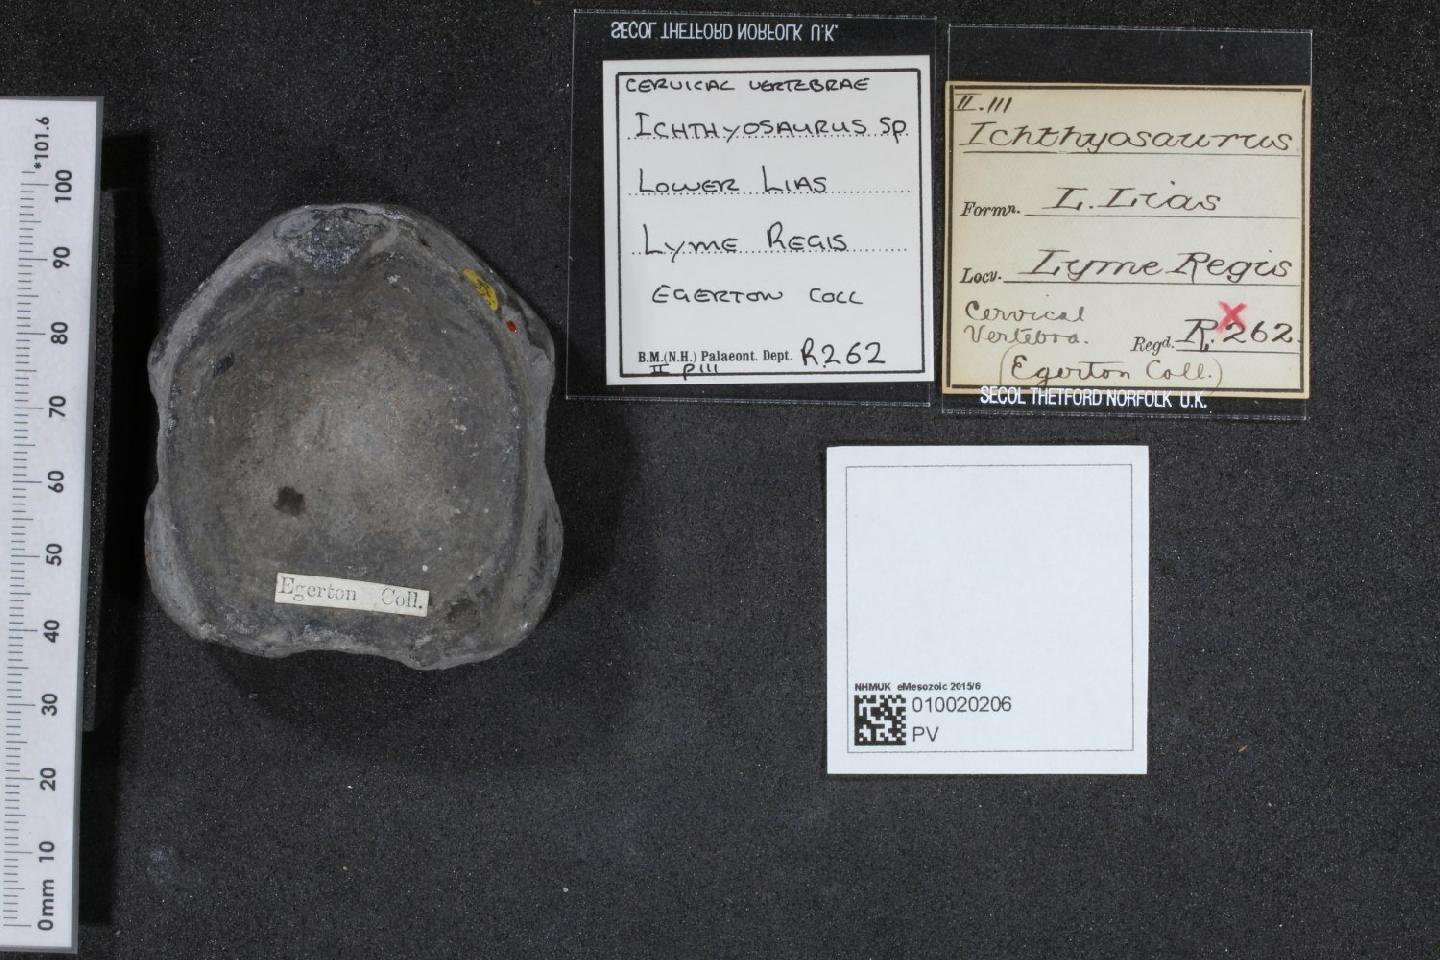 SECOL THETFORD NORFOLK U.K.
CERVICAL VERTEBRAE
ICHTHYOSAURUS sp
LOWER LIAS
LYME REGIS
EGERTON COLL
B.M.(N.H.) Palaeont. Dept. R.262
II p111
II.111
Ichthyosaurus
Formn. L. Lias
Locy. Lyme Regis
Cervical
Vertebra.
Regd. R. X 262.
(Egerton Coll.)
SECOL THETFORD NORFOLK U.K.
Egerton Coll.
NHMUK eMesozoic 2015/6
010020206
PV
*101.6
100
90
80
70
60
50
40
30
20
10
0mm